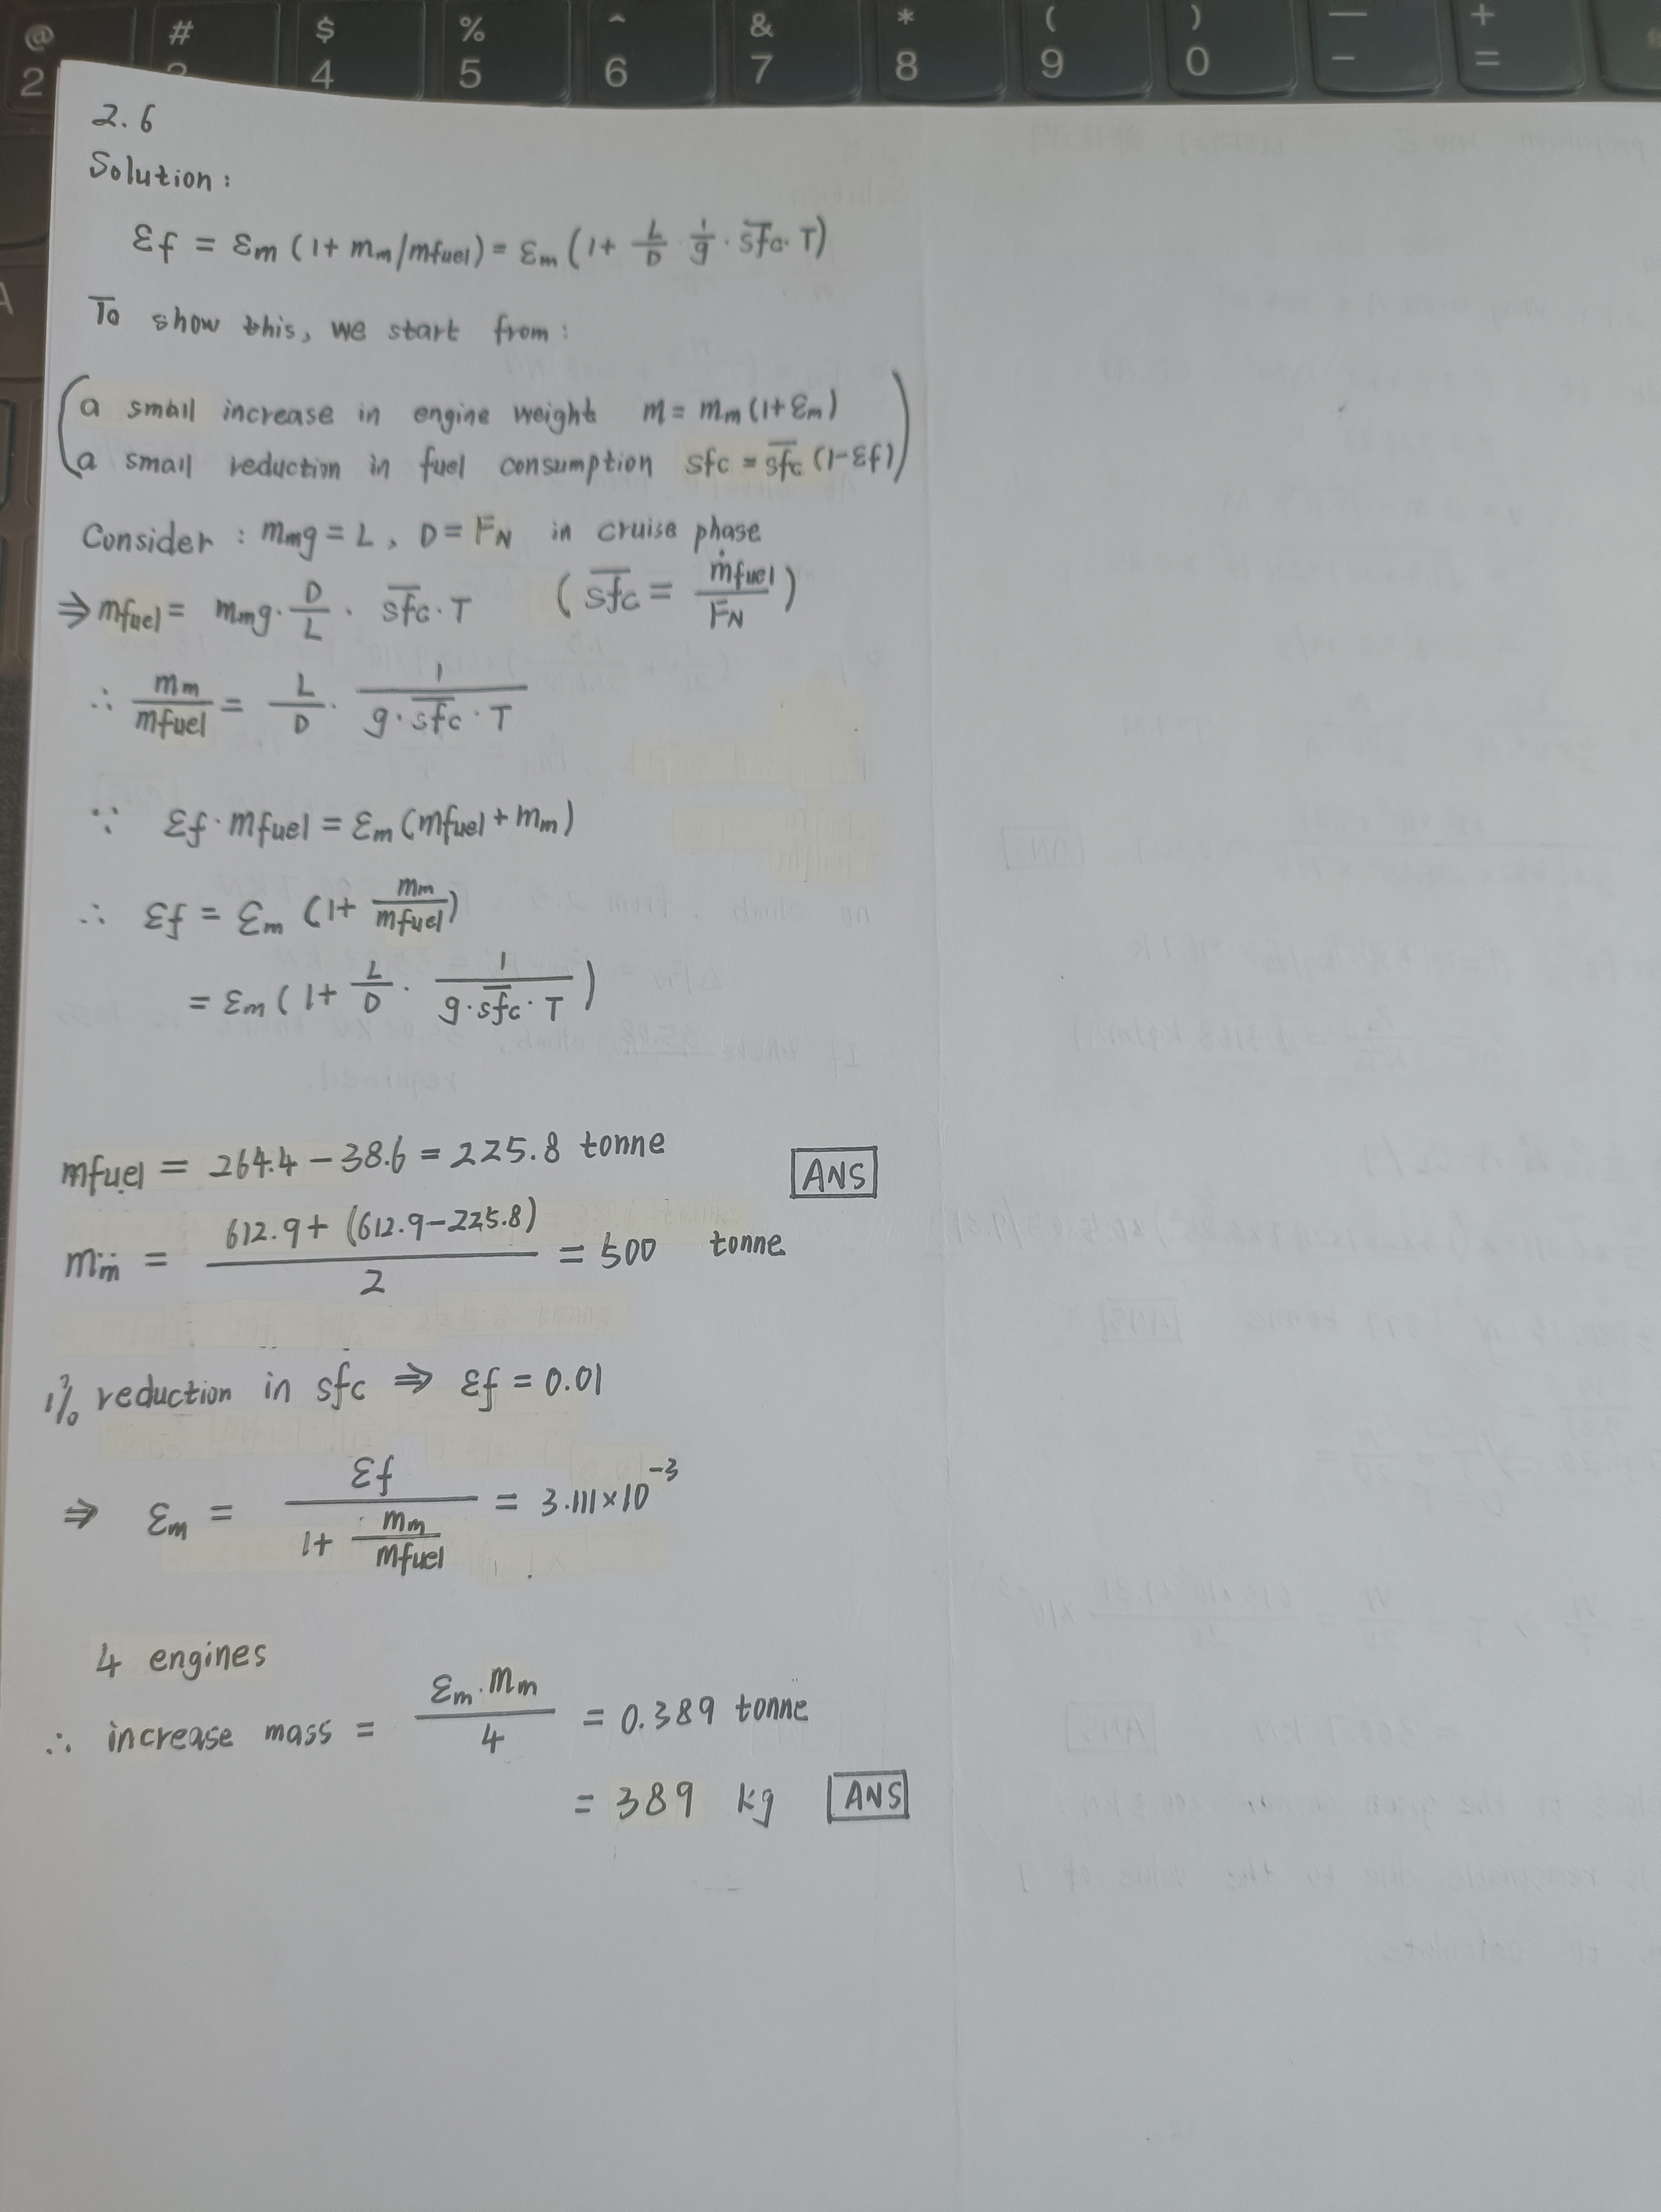 @ # $ % ^ & * ( ) — +
2 3 4 5 6 7 8 9 0 - =
A
2.6
Solution:
εf = εm (1+ mm/mfuel) = εm (1+ L/D · 1/g · s̅f̅c̅ · T)
To show this, we start from:
(a small increase in engine weight m = mm(1+εm)
a small reduction in fuel consumption sfc = s̅f̅c̅ (1-εf))
Consider: mmg = L, D = FN in cruise phase
⇒ mfuel = mmg · D/L · s̅f̅c̅ · T (s̅f̅c̅ = ṁfuel/FN)
∴ mm/mfuel = L/D · 1/(g · s̅f̅c̅ · T)
∵ εf · mfuel = εm (mfuel + mm)
∴ εf = εm (1+ mm/mfuel)
= εm (1+ L/D · 1/(g · s̅f̅c̅ · T))
mfuel = 264.4 - 38.6 = 225.8 tonne ANS
mm = (612.9 + (612.9 - 225.8))/2 = 500 tonne
1% reduction in sfc ⇒ εf = 0.01
⇒ εm = εf/(1+ mm/mfuel) = 3.111×10⁻³
4 engines
∴ increase mass = εm · mm/4 = 0.389 tonne
= 389 kg ANS